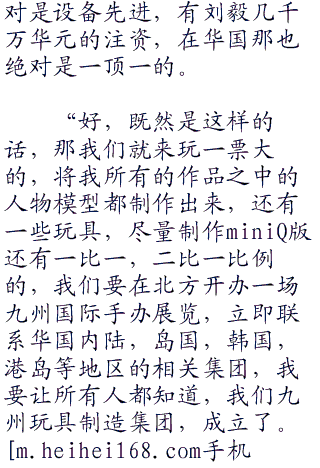 对是设备先进，有刘毅几千
万华元的注资，在华国那也
绝对是一顶一的。
“好，既然是这样的
话，那我们就来玩一票大
的，将我所有的作品之中的
人物模型都制作出来，还有
一些玩具，尽量制作miniQ版
还有一比一，二比一比例
的，我们要在北方开办一场
九州国际手办展览，立即联
系华国内陆，岛国，韩国，
港岛等地区的相关集团，我
要让所有人都知道，我们九
州玩具制造集团，成立了。
[m.heihei168.com手机